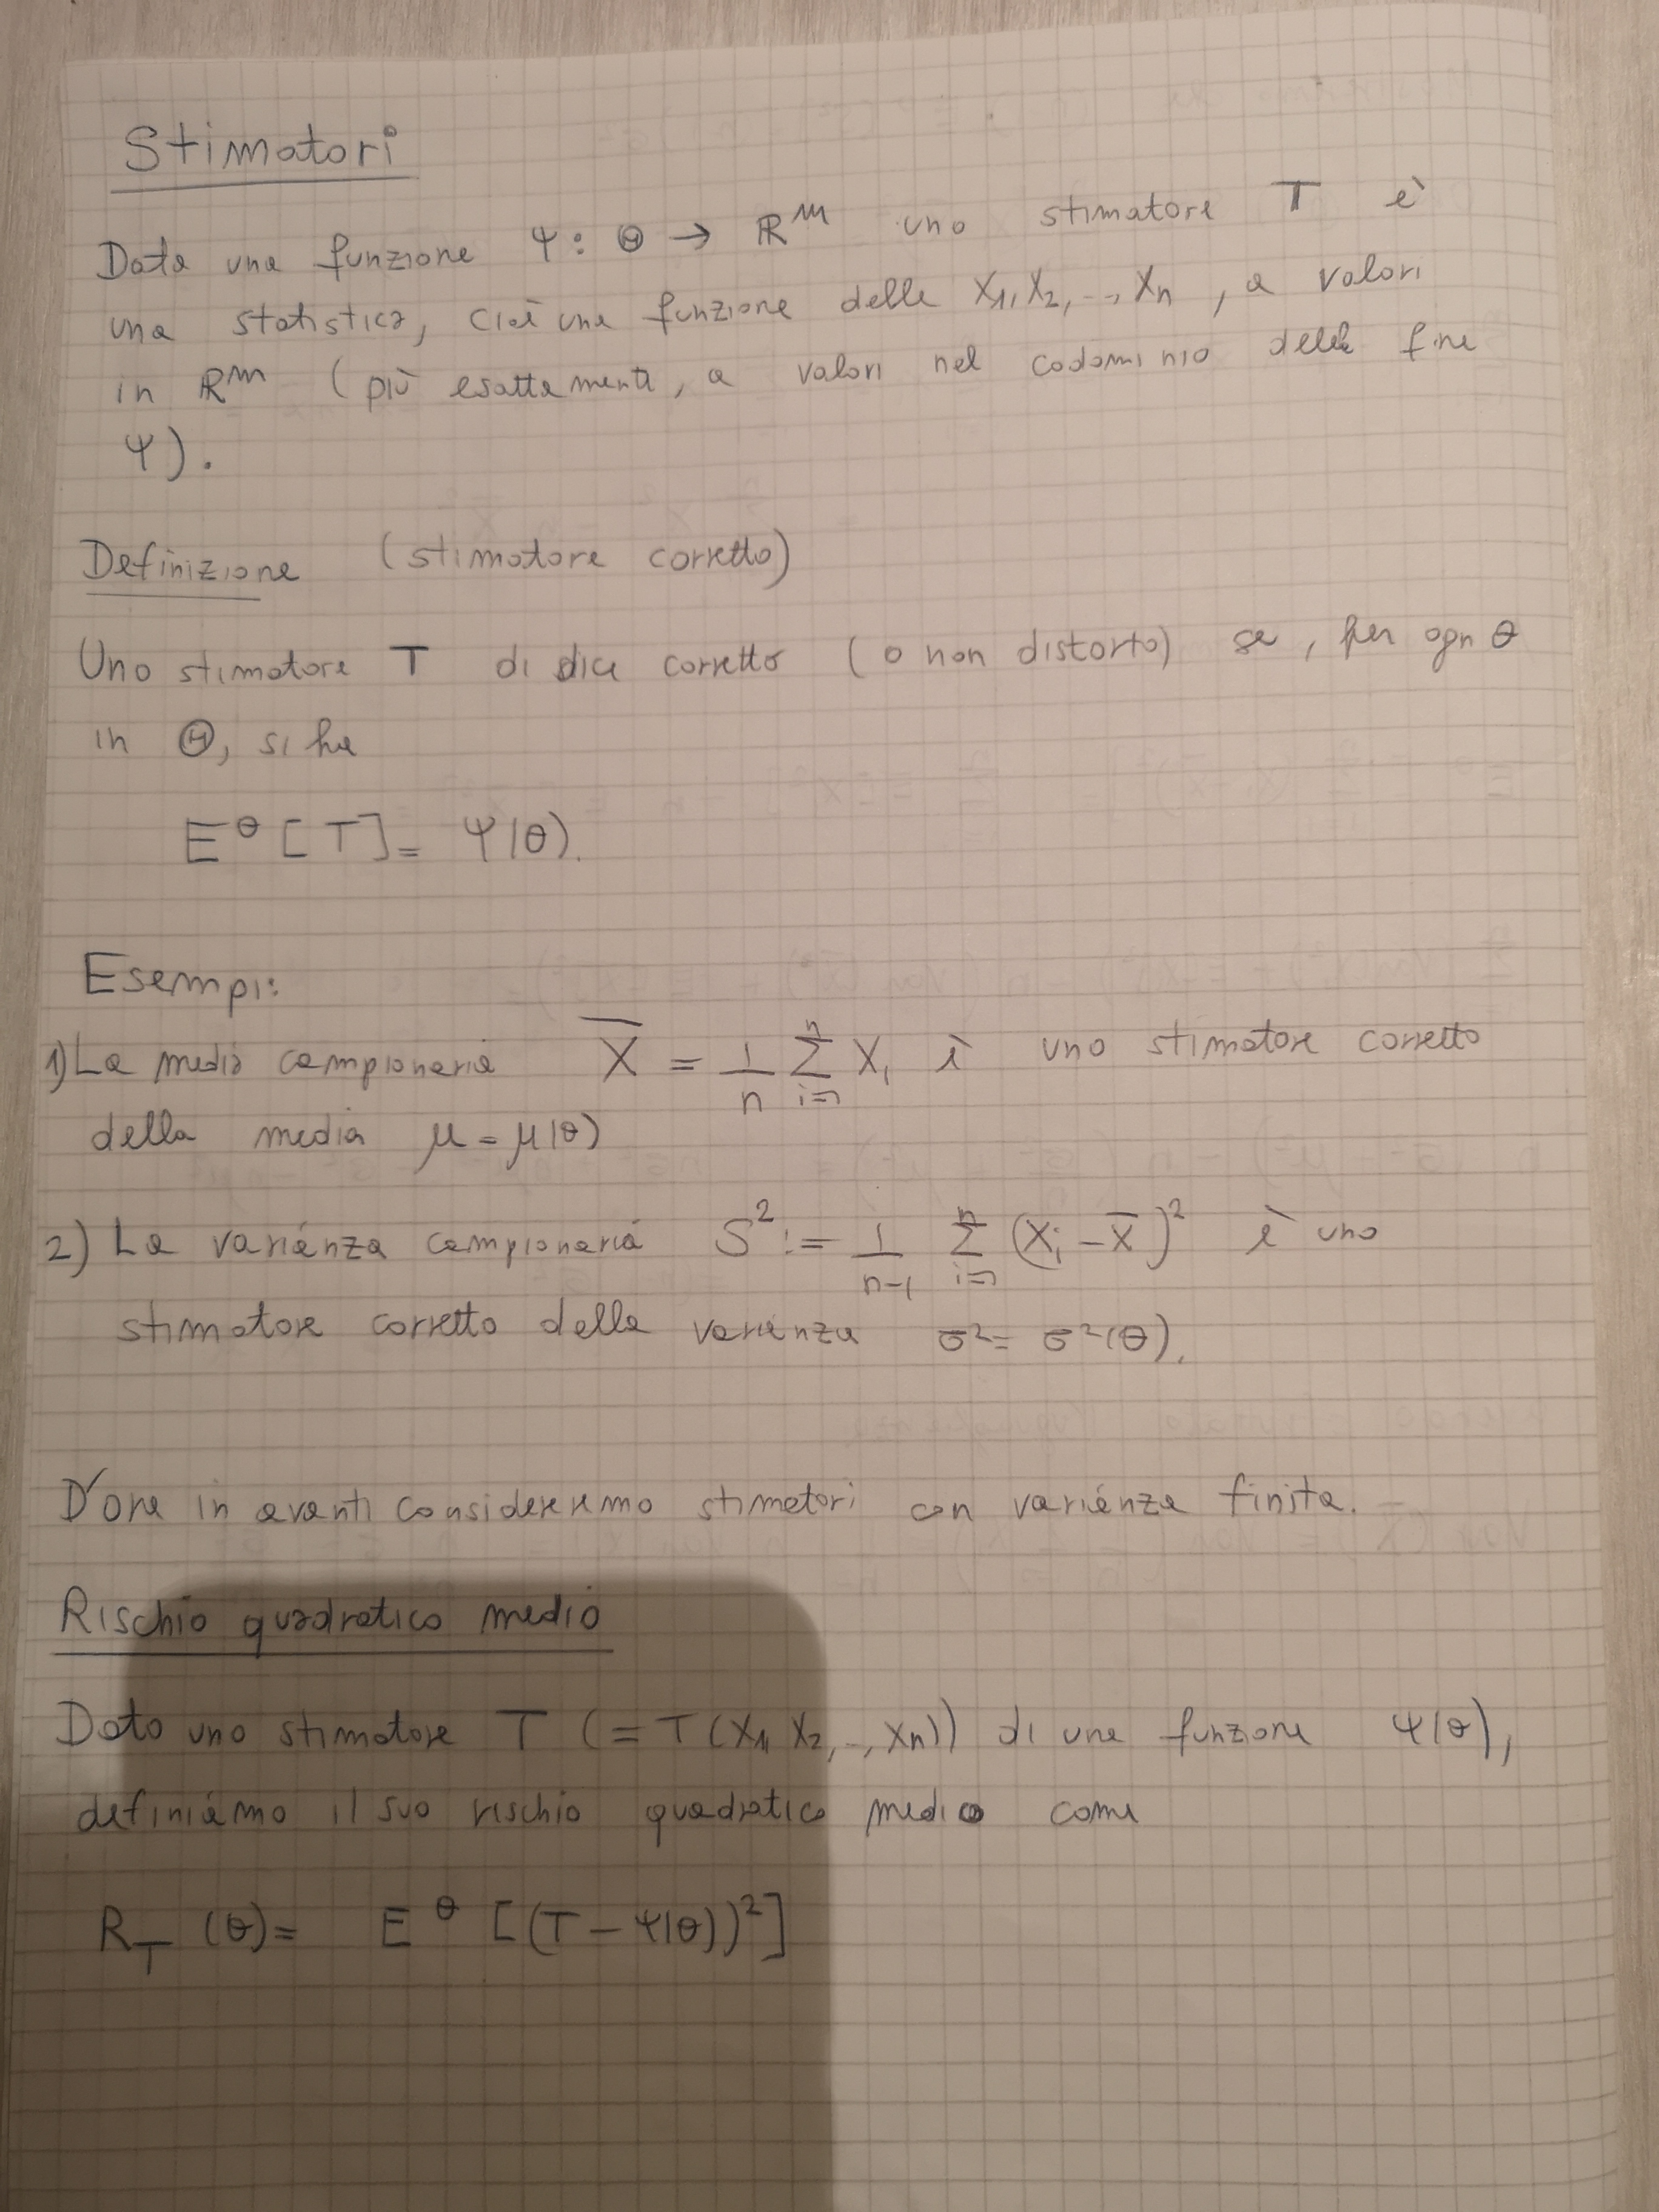 Stimatori
Data una funzione Ψ: Θ → ℝᵐ uno stimatore T è
una statistica, cioè una funzione delle X₁, X₂, .., Xₙ, a valori
in ℝᵐ (più esattamente, a valori nel codominio della fne
Ψ).
Definizione (stimatore corretto)
Uno stimatore T di dice corretto (o non distorto) se, per ogn θ
in Θ, si ha
E^θ [T] = Ψ(θ).
Esempi:
1) La media campionaria X̅ = 1/n ∑_{i=1}^{n} Xᵢ è uno stimatore corretto
della media μ = μ(θ)
2) La varianza campionaria S² := 1/(n-1) ∑_{i=1}^{n} (Xᵢ - X̅)² è uno
stimatore corretto della varianza σ² = σ²(θ).
D'ora in avanti considereremo stimatori con varianza finita.
Rischio quadratico medio
Dato uno stimatore T (= T(X₁, X₂, .., Xₙ)) di una funzione Ψ(θ),
definiamo il suo rischio quadratico medio come
R_T (θ) = E^θ [(T - Ψ(θ))²]